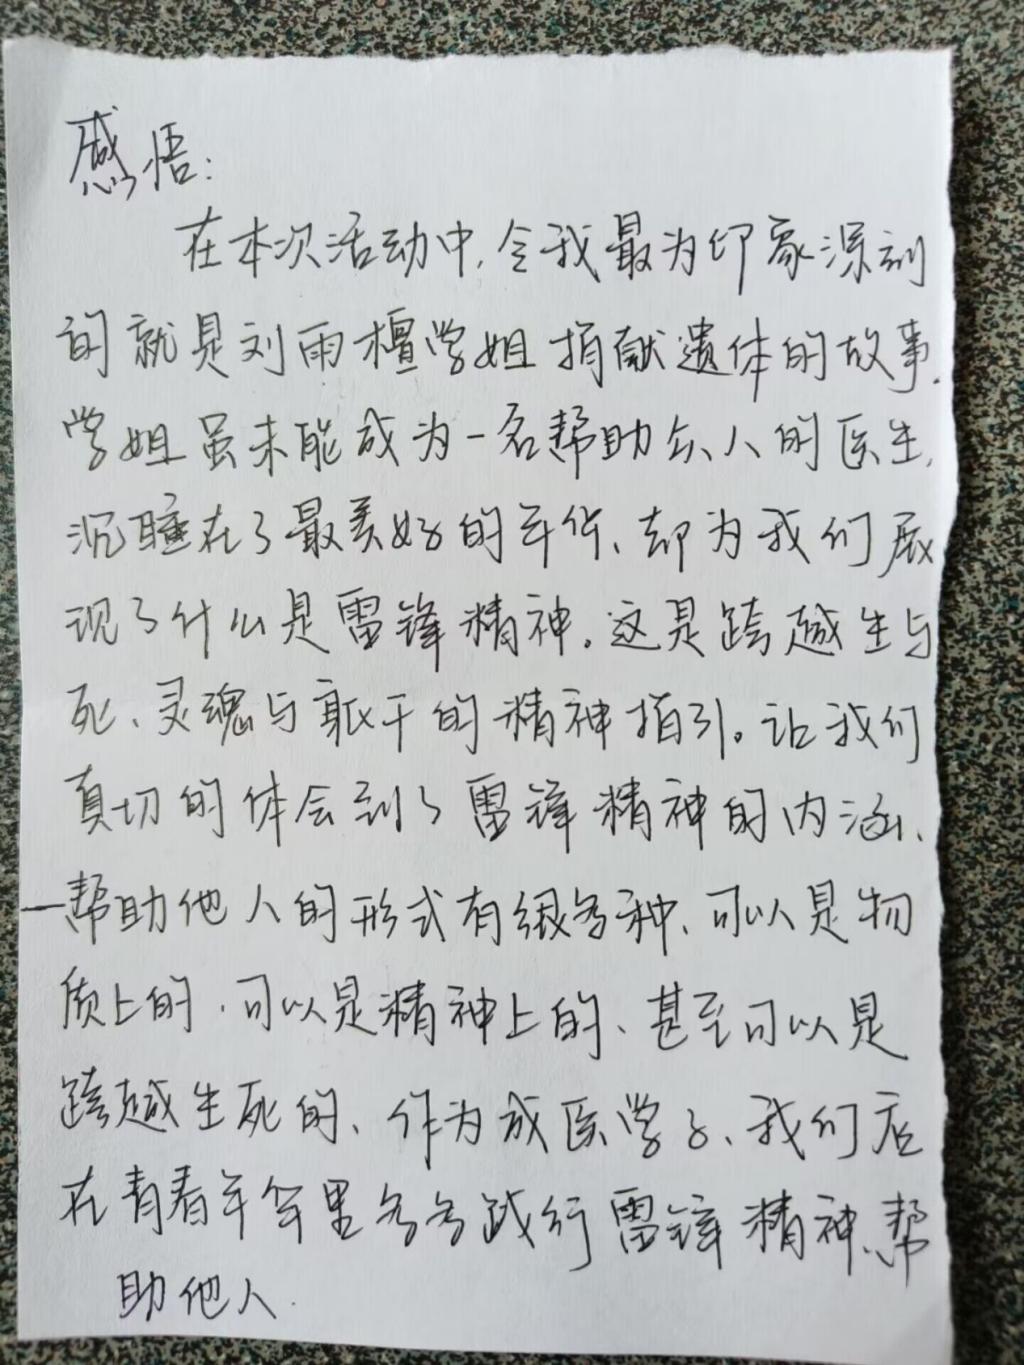 感悟:
在本次活动中,令我最为印象深刻
的就是刘雨檀学姐捐献遗体的故事.
学姐虽未能成为一名帮助众人的医生,
沉睡在了最美好的年华、却为我们展
现了什么是雷锋精神。这是跨越生与
死、灵魂与躯干的精神指引。让我们
真切的体会到了雷锋精神的内涵、
帮助他人的形式有很多种、可以是物
质上的、可以是精神上的、甚至可以是
跨越生死的、作为成医学子、我们应
在青春年华里多多践行雷锋精神、帮
助他人.